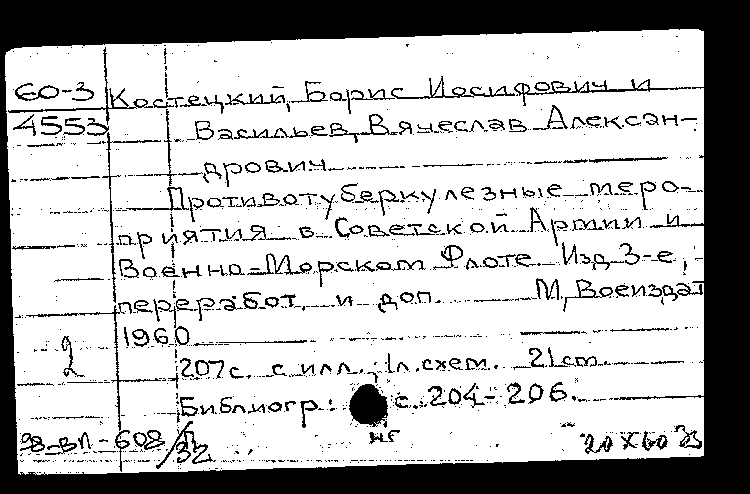 60-3 Костецкий, Борис Иосифович и
4553 Васильев, Вячеслав Алексан-
дрович
Противотуберкулезные меро-
приятия в Советской Армии и
Военно-Морском Флоте. Изд 3-е,
переработ. и доп. М, Воениздат
1960
2 207с. с илл., 1л.схем. 21cm.
Библиогр: с. 204-206.
98-ВП-608/32 20 X 60